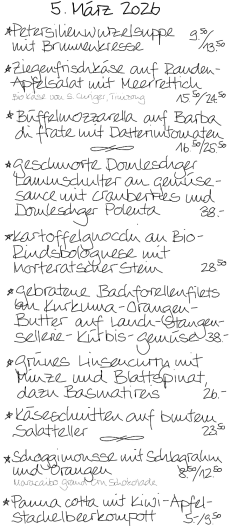 5. März 2026
*Petersilienwurzelsuppe 9.50
mit Brunnenkresse /13.50
*Ziegenfrischkäse auf Randen-
Apfelsalat mit Meerrettich
15.50/24.50
*Büffelmozzarella auf Barba
di frate mit Datterinitomaten
16.50/25.50
*Geschmorte Domleschger
Lammschulter an Gemüse-
sauce mit Cranberries und
Domleschger Polenta 38.-
*Kartoffelgnocchi an Bio-
Rindsbolognese mit
Morteratscher Stein 28.50
*Gebratene Bachforellenfilets
an Kurkuma-Orangen-
Butter auf Lauch-Stangen-
sellerie-Kürbis-Gemüse 38.-
*Grünes Linsencurry mit
Minze und Blattspinat,
dazu Basmatireis 26.-
*Käseschnitten auf buntem
Salatteller 23.50
*Schoggimousse mit Schlagrahm
und Orangen 8.50/12.50
Maracaibo Grand Cru Schokolade
*Panna cotta mit Kiwi-Apfel-
Stachelbeerkompott 5.-/9.50